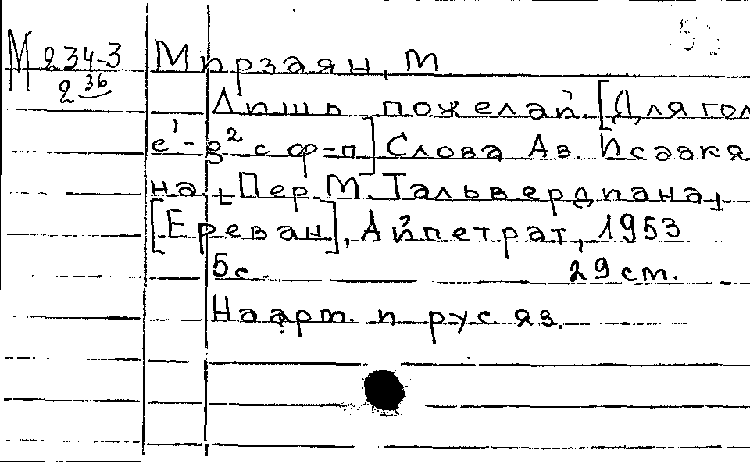 М 234-3 Мирзаян, М
2 36
Лишь пожелай [Для гол
e¹-g² с ф-п] Слова Ав. Исаакя
на. Пер. М. Тальвердиана.
[Ереван], Айпетрат, 1953
5 с. 29 см.
На арм. и рус. яз.